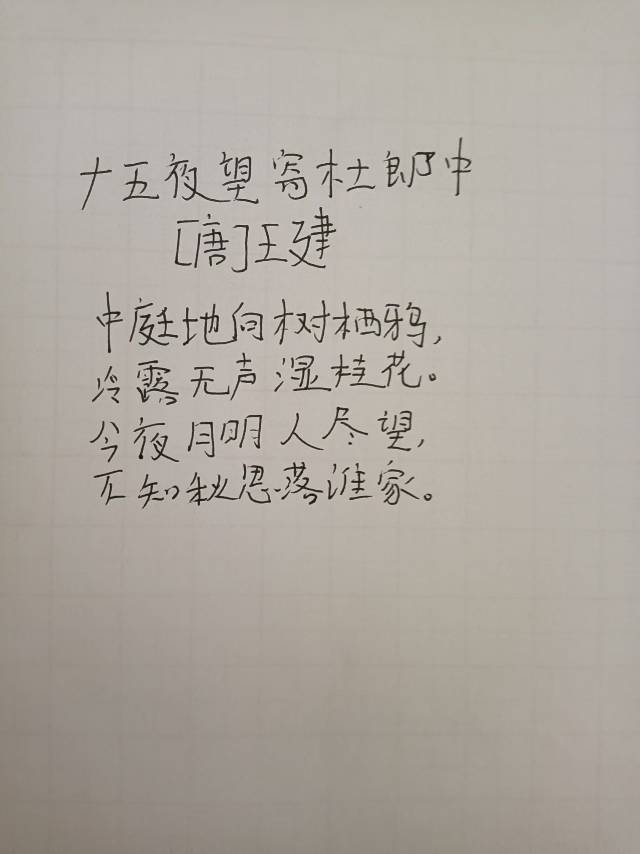 十五夜望寄杜郎中
[唐]王建
中庭地向树栖鸦,
冷露无声湿桂花。
今夜月明人尽望,
不知秋思落谁家。